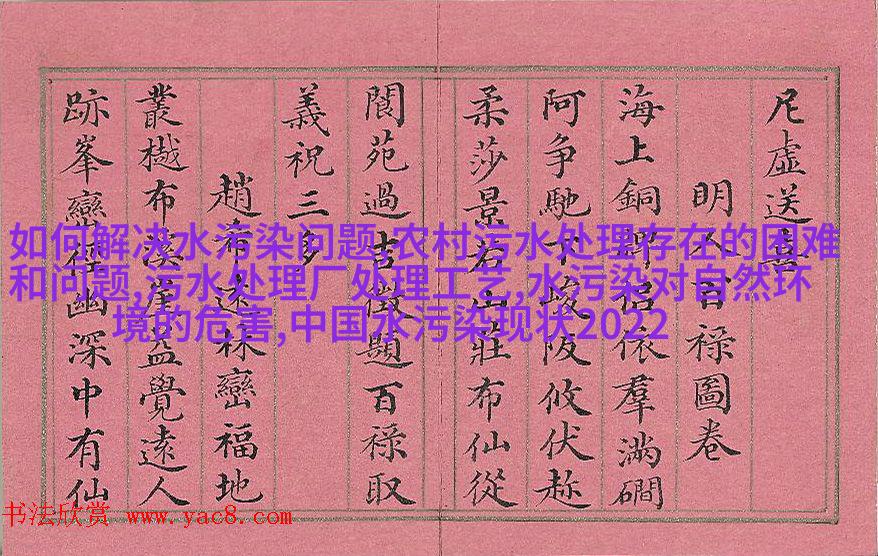 虛送
明人百祿圖卷
海上銅侶依羣滿磵
阿争馳下峻阪攸伏趂
柔莎景若山莊布仙從
閬苑過吉徵題百祿取
義祝三多
趙希遠林巒福地
叢樾布溪崖益覺遠人
跡峯巒徑幽深中有仙
如何解决水污染问题,农村污水处理存在的困难
和问题,污水处理厂处理工艺,水污染对自然环
境的危害,中国水污染现状2022
书法欣赏 www.yac8.com